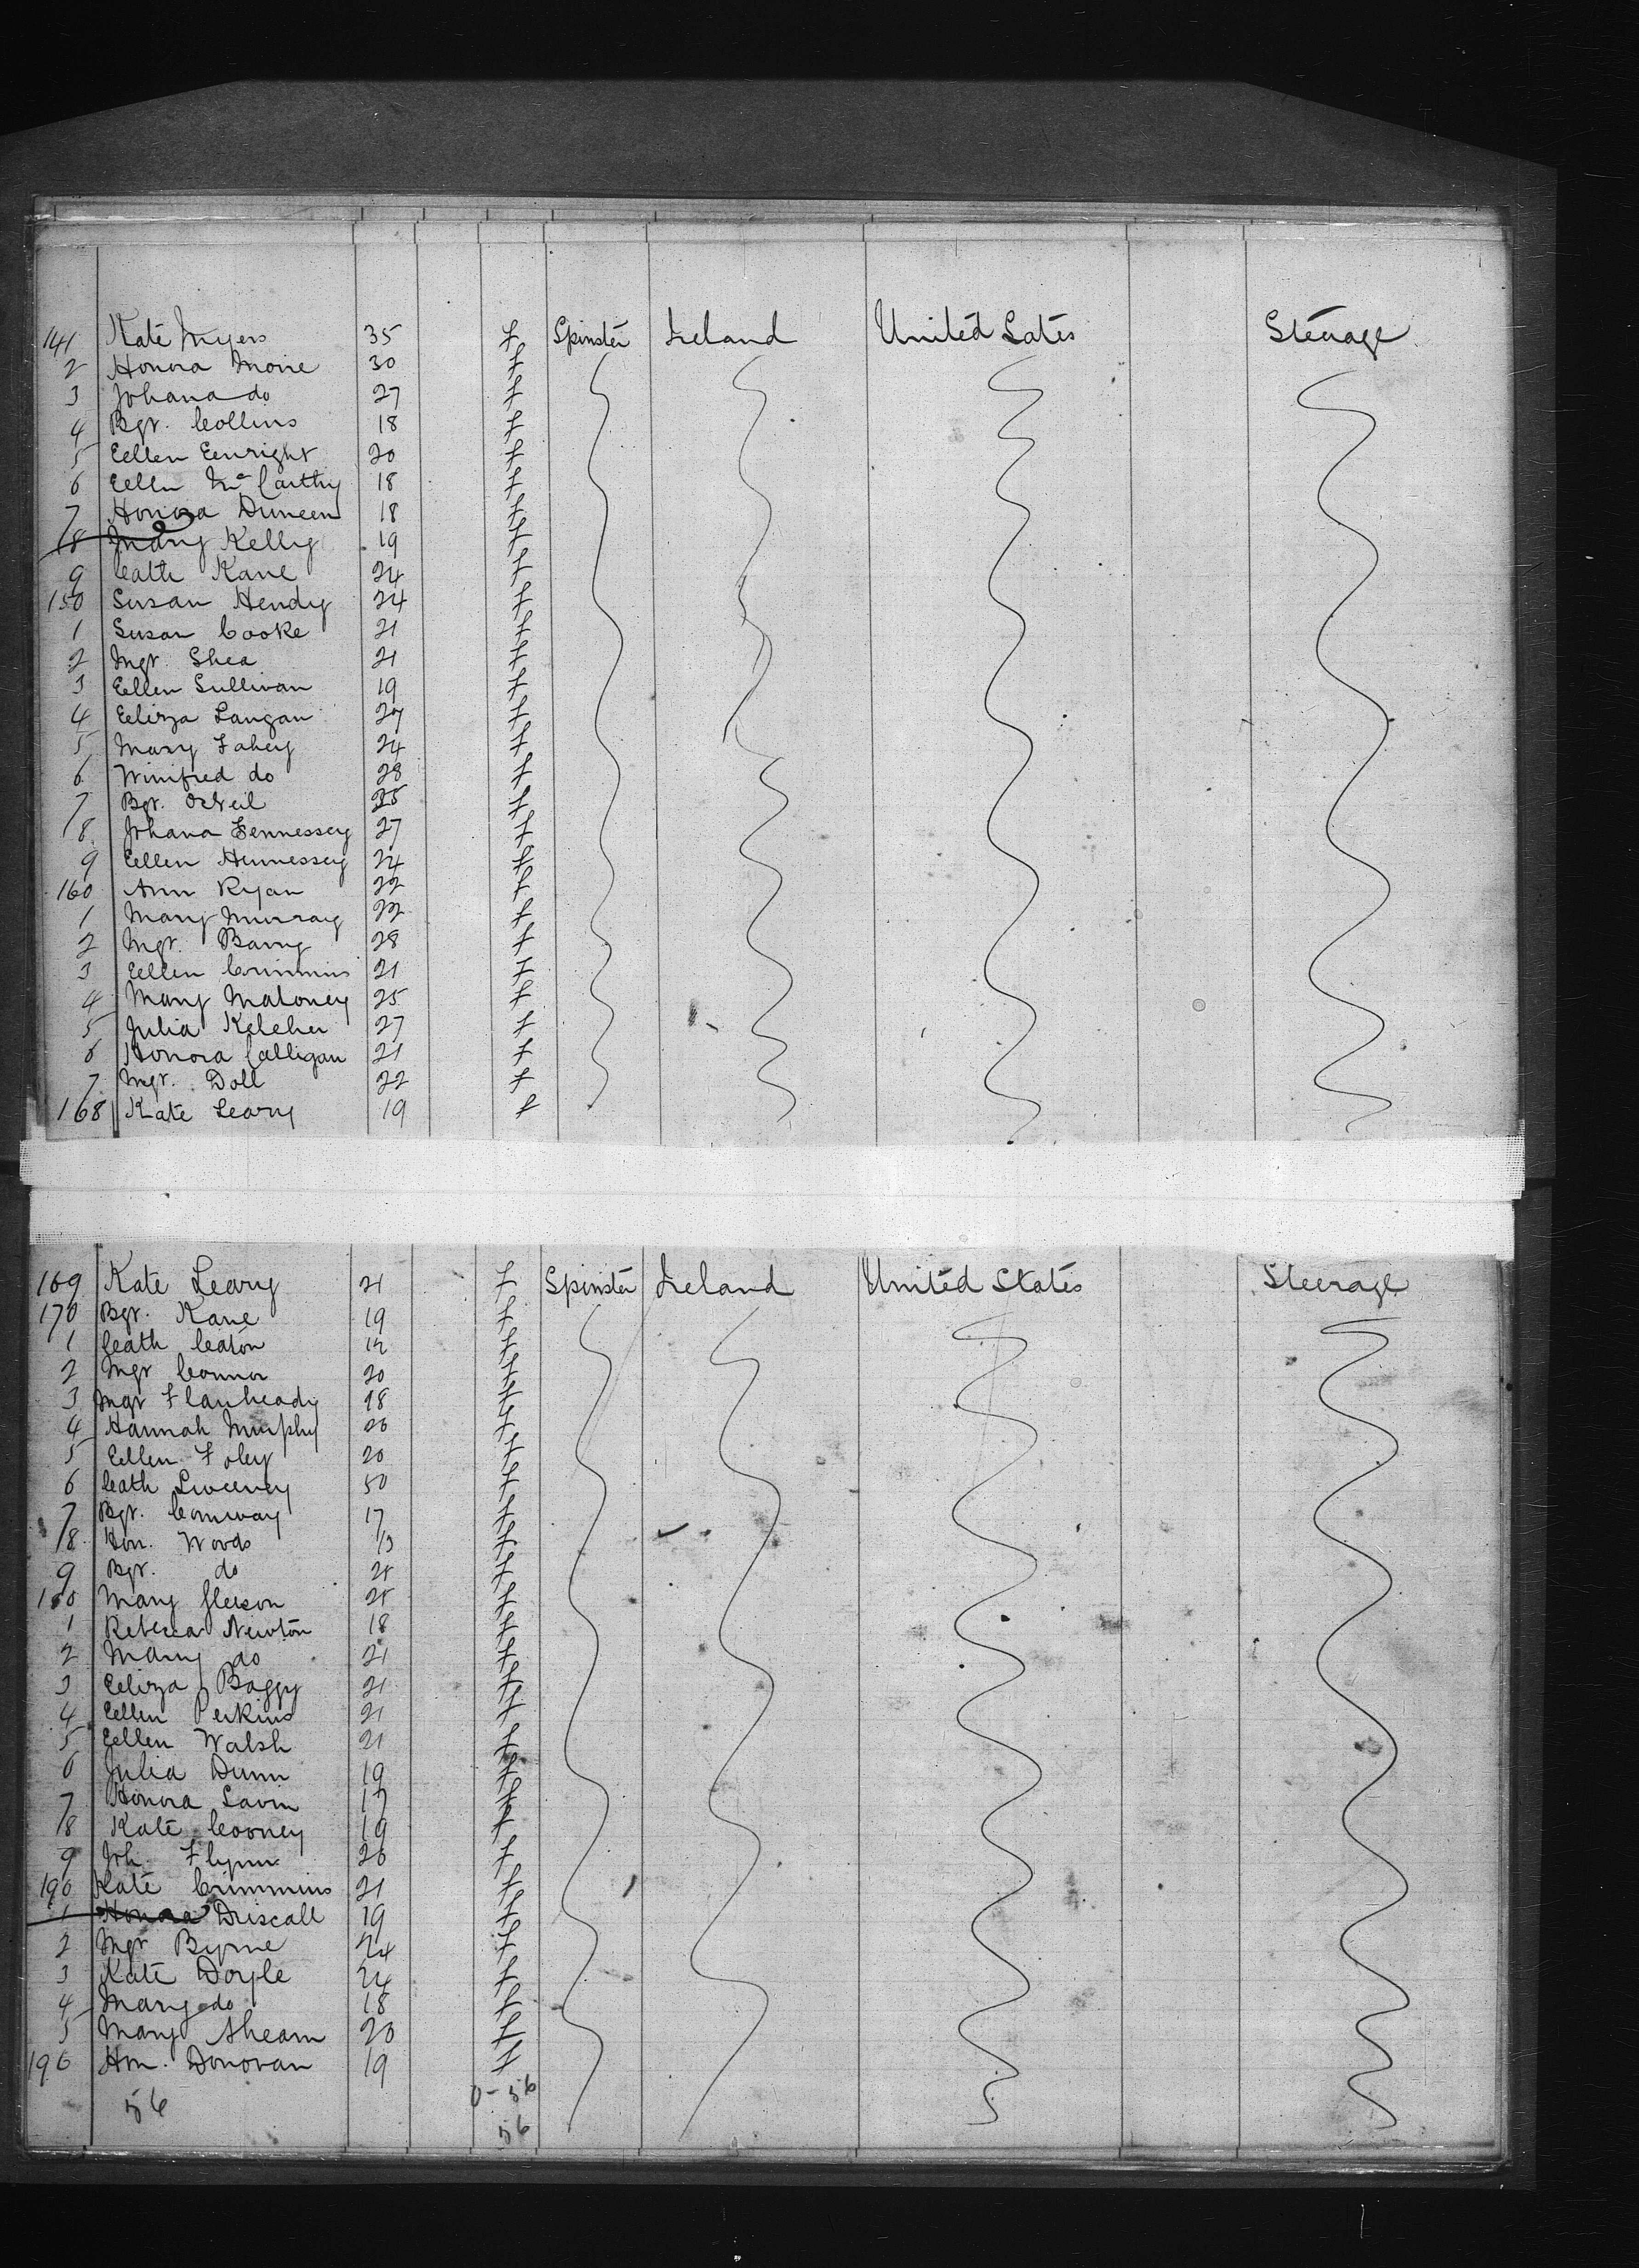 141 Kate Myers 35 F Spinster Ireland United Sates Steerage
2 Honora Moore 30 F
3 Johana do 27 F
4 Bgt. Collins 18 F
5 Eellen Eenright 20 F
6 Eellen McCarthy 18 F
7 Honora Duneen 18 F
8 Mary Kelly 19 F
9 Cath Kane 24 F
150 Susan Hendy 24 F
1 Susan Cooke 21 F
2 Mgt. Shea 21 F
3 Eellen Sullivan 19 F
4 Eeliza Langan 27 F
5 Mary Fahey 24 F
6 Winifred do 28 F
7 Bgt. O'Neil 25 F
8 Johana Fennessey 27 F
9 Eellen Hennessey 24 F
160 Ann Ryan 22 F
1 Mary Murray 22 F
2 Mgt. Barry 28 F
3 Eellen Crimmins 21 F
4 Mary Maloney 25 F
5 Julia Keleher 27 F
6 Honora Calligan 21 F
7 Mgt. Doll 22 F
168 Kate Leary 19 F
169 Kate Leary 21 F Spinster Ireland United States Steerage
170 Bgt. Kane 19 F
1 Cath Ceaton F
2 Mgt Connor 20 F
3 Mgt Flanheady F
4 Hannah Murphy 20 F
5 Eellen Foley 20 F
6 Cath Sweeney 50 F
7 Bgt. Conway 17 F
8 Hon. Woods F
9 Bgt. do F
180 Mary Gleeson F
1 Rebecca Newton 18 F
2 Mary do 21 F
3 Eeliza Boggy 21 F
4 Eellen Perkins 21 F
5 Eellen Walsh 21 F
6 Julia Dunn 19 F
7 Honora Lavin 17 F
8 Kate Cooney 19 F
9 Joh. Flynn 20 F
190 Kate Crimmins 21 F
1 Honora Driscall 19 F
2 Mgt Byrne 24 F
3 Kate Doyle 24 F
4 Mary do 18 F
5 Mary Ahearn 20 F
196 Hon. Donovan 19 F
56 0-56
56